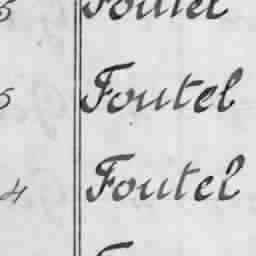 5 Foutel
5 Foutel
4 Foutel